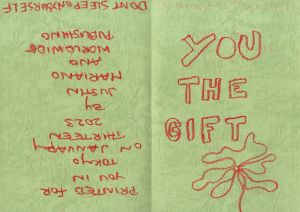 YOU
THE
GIFT
PRINTED FOR
YOU IN
TOKYO
ON JANUARY
THIRTEEN
2023
BY
JUSTIN
MARIANO
AND
WORLDWIDE
PUBLISHING
DONT SLEEP ON YOURSELF